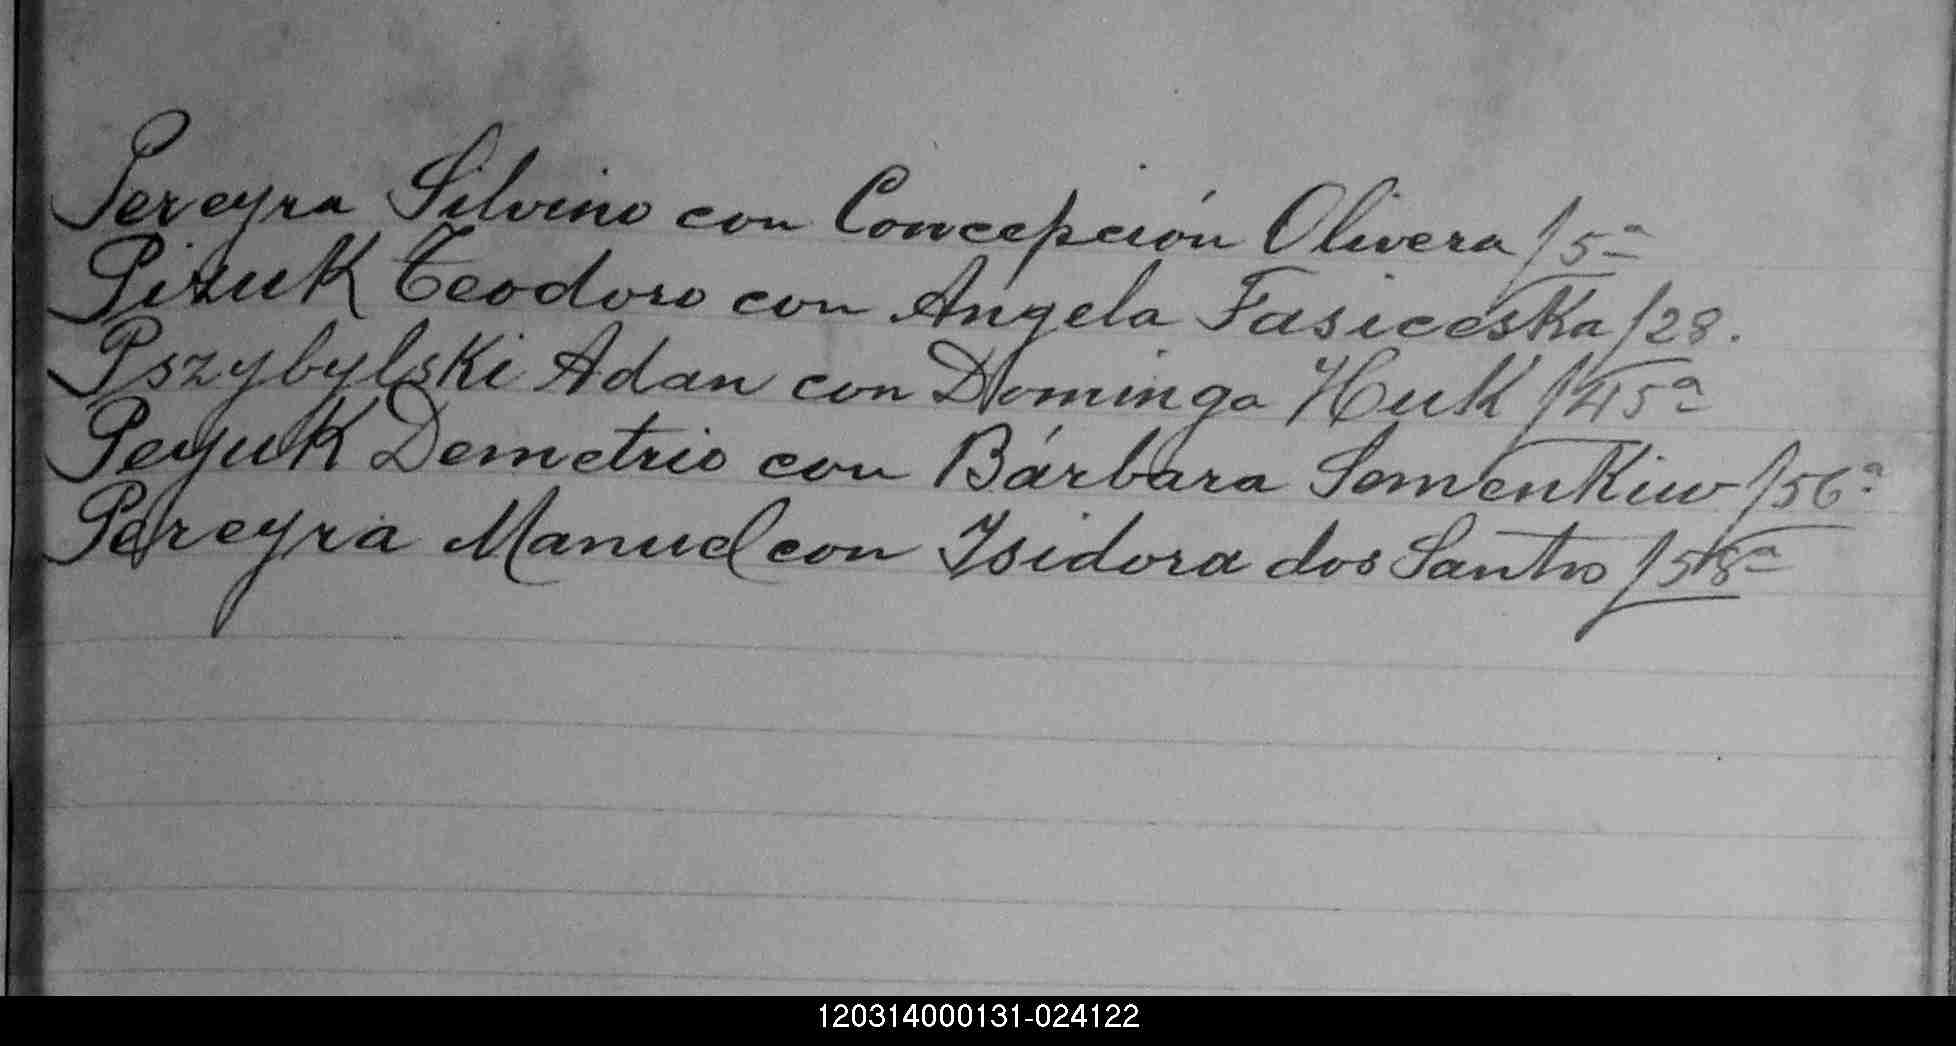 Pereyra Silvino con Concepción Olivera f 5ª
Pizuk Teodoro con Angela Fasiceska f 28.
Pszybylski Adan con Dominga Huk f 45ª
Peyuk Demetrio con Bárbara Semenkiw f 56ª
Pereyra Manuel con Isidora dos Santos f 58ª
120314000131-024122